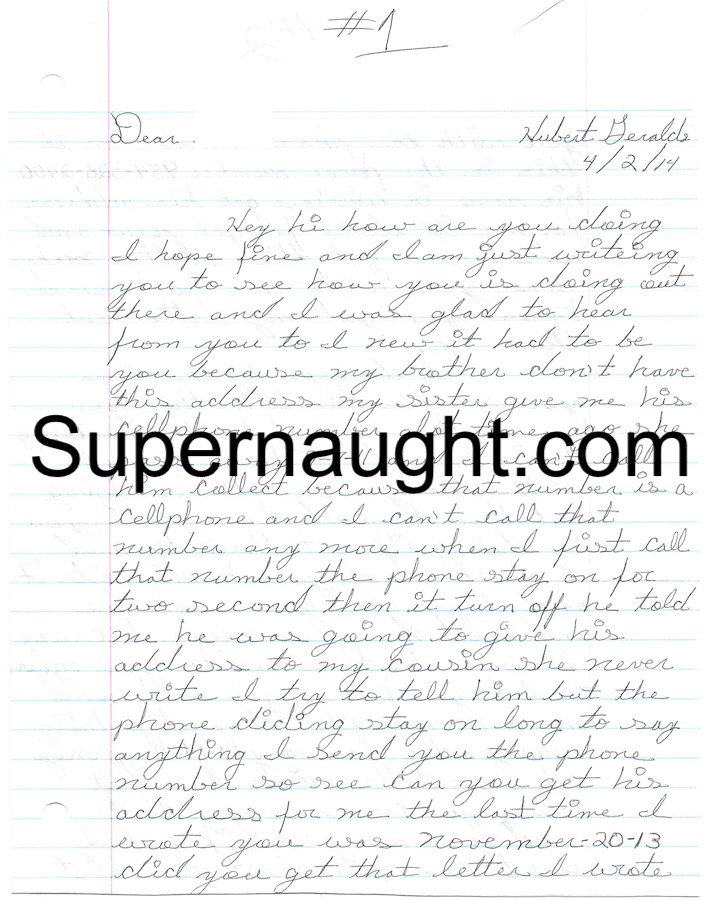 #1
Dear Hubert Geralds
4/2/14
Hey hi how are you doing
I hope fine and I am just writeing
you to see how you is doing out
there and I was glad to hear
from you to I new it had to be
you because my brother don't have
this address my sister give me his
cellphone number alot time ago she
Supernaught.com
pass away and I can't call
him collect because that number is a
cellphone and I can't call that
number any more when I first call
that number the phone stay on for
two second then it turn off he told
me he was going to give his
address to my cousin she never
write I try to tell him but the
phone diding stay on long to say
anything I send you the phone
number so see can you get his
address for me the last time I
wrote you was november-20-13
did you get that letter I wrote